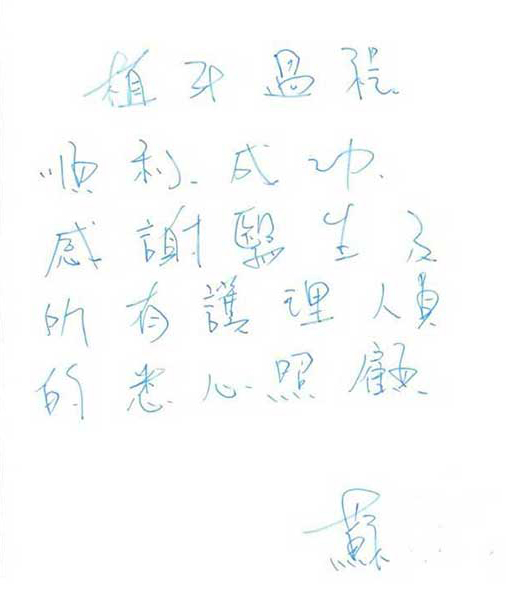 植牙過程
順利.成功.
感謝醫生及
所有護理人員
的悉心照顧
蘇